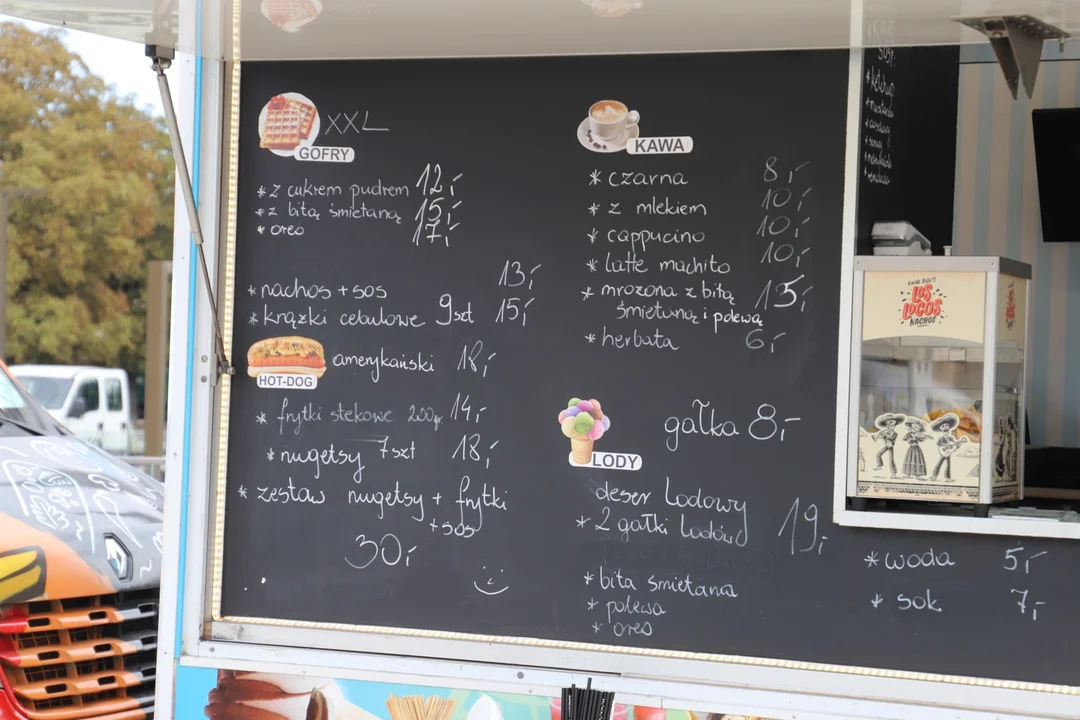 XXL
GOFRY
* z cukrem pudrem 12,-
* z bitą śmietaną 15,-
* oreo 17,-
* nachos + sos 13,-
* krążki cebulowe 9szt 15,-
HOT-DOG
amerykański 18,-
* frytki stekowe 200gr. 14,-
* nugetsy 7szt 18,-
* zestaw nugetsy + frytki
+ sos
30,-
KAWA
* czarna 8,-
* z mlekiem 10,-
* cappucino 10,-
* latte machito 10,-
* mrożona z bitą
śmietaną i polewą 15,-
* herbata 6,-
LODY
gałka 8,-
deser lodowy
* 2 gałki lodów 19,-
* bita śmietana
* polewa
* oreo
* woda 5,-
* sok 7,-
sosy.
* ketchup
LOS
LOCOS
NACHOS